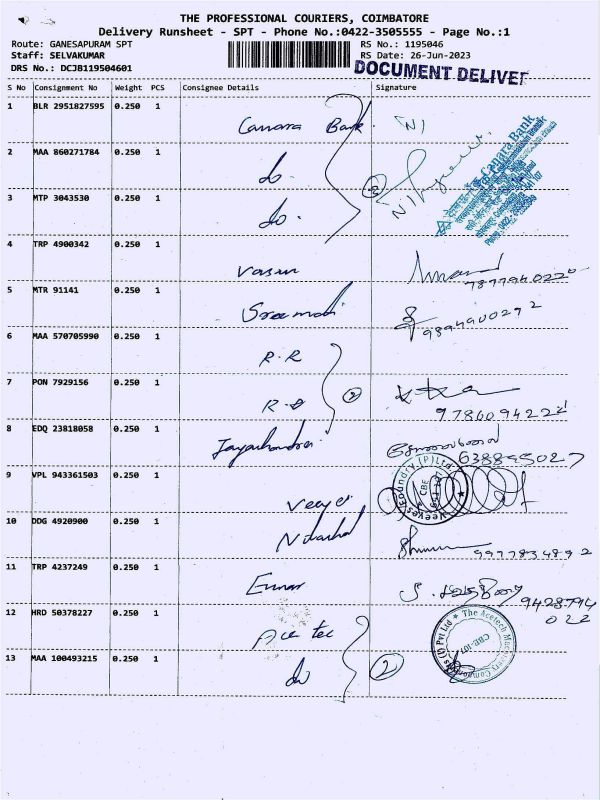 THE PROFESSIONAL COURIERS, COIMBATORE
Delivery Runsheet - SPT - Phone No.:0422-3505555 - Page No.:1
Route: GANESAPURAM SPT
Staff: SELVAKUMAR
DRS No.: DCJB119504601
RS No.: 1195046
RS Date: 26-Jun-2023
DOCUMENT DELIVER
S No Consignment No Weight PCS Consignee Details Signature
1 BLR 2951827595 0.250 1 Canara Bank
2 MAA 860271784 0.250 1 do.
3 MTP 3043530 0.250 1 do.
Canara Bank
4 TRP 4900342 0.250 1 Vasan
5 MTR 91141 0.250 1 9894900292
6 MAA 570705990 0.250 1 R.R
7 PON 7929156 0.250 1 2
8 EDQ 23818058 0.250 1 Jayachandra
9 VPL 943361503 0.250 1
Foundry (P) Ltd
CBE
10 DDG 4920900 0.250 1 9977834892
11 TRP 4237249 0.250 1
9428794
022
12 HRD 50378227 0.250 1 Ace tec
The Acetech Machinery Components (I) Pvt Ltd
CBE-107
13 MAA 100493215 0.250 1 do 2